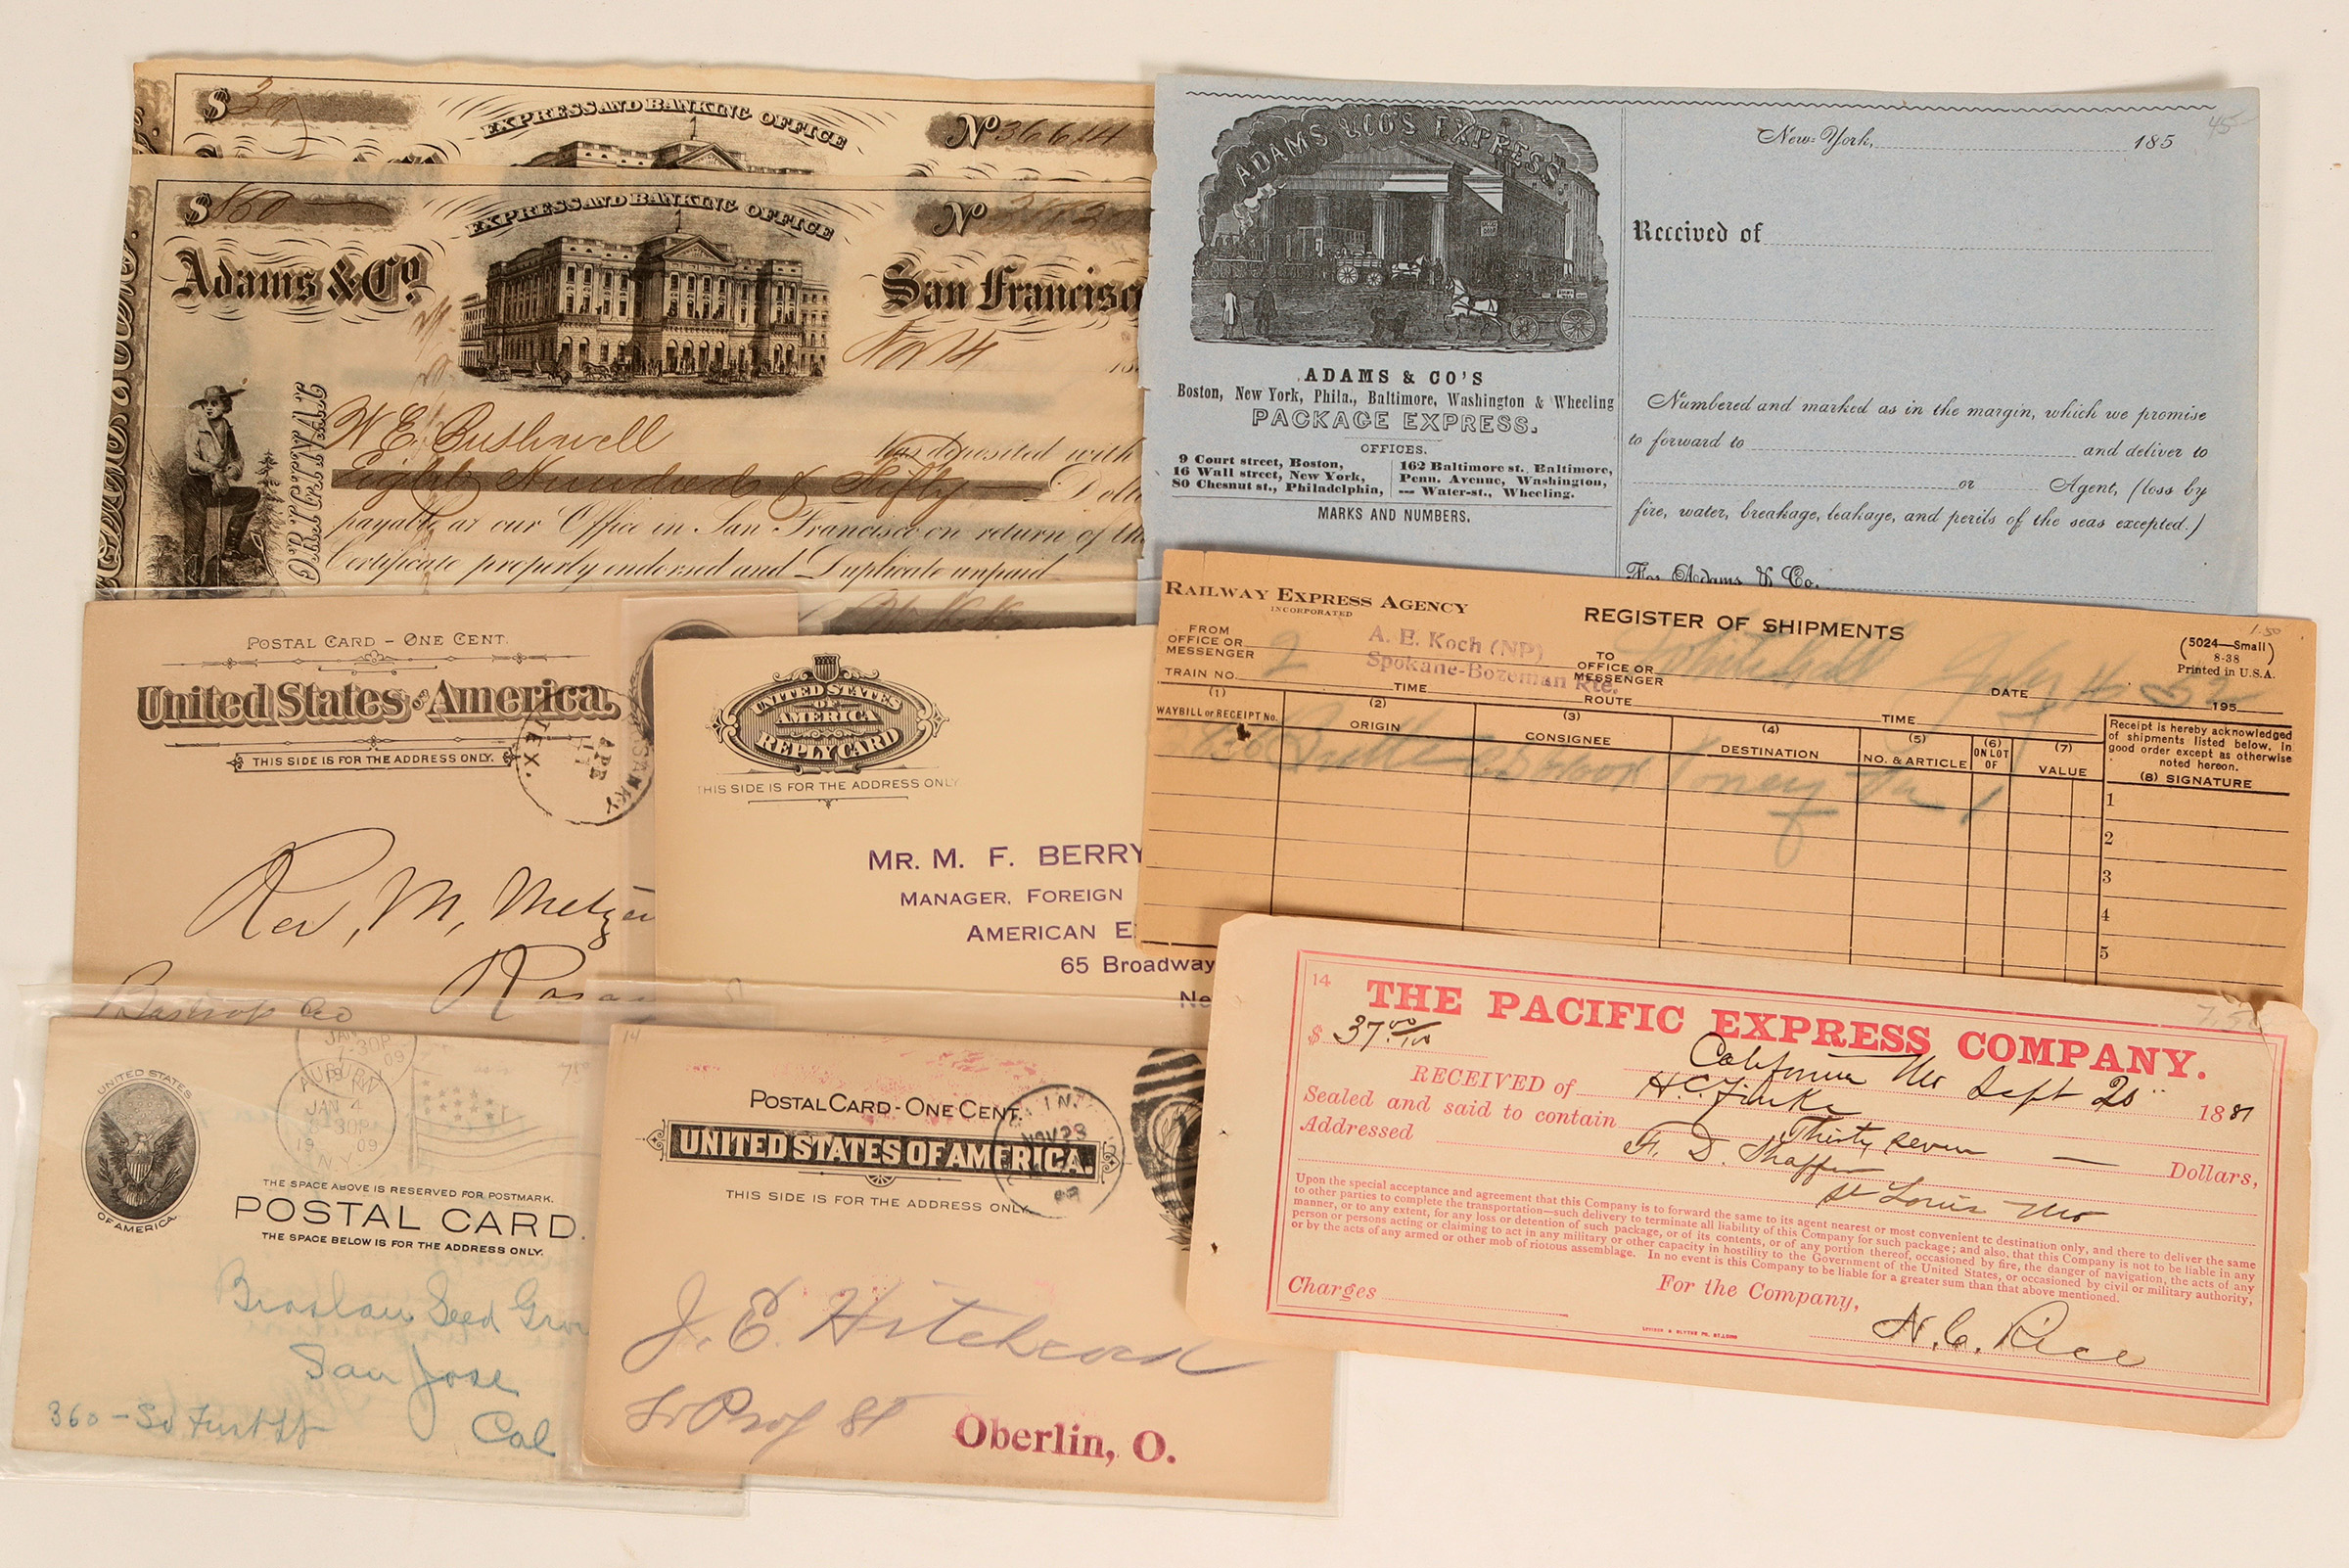 $ 39
EXPRESS AND BANKING OFFICE
No 36614
$ 850
EXPRESS AND BANKING OFFICE
No
Adams & Co.
San Francisc
Nov 14
18
ORIGINAL
W E Bushnell
has deposited with
Eight Hundred & Fifty
Dolla
payable at our Office in San Francisco on return of th
Certificate properly endorsed and Duplicate unpaid
ADAMS & CO'S EXPRESS
ADAMS & CO'S
Boston, New York, Phila., Baltimore, Washington & Wheeling
PACKAGE EXPRESS.
OFFICES.
9 Court street, Boston,
16 Wall street, New York,
80 Chesnut st., Philadelphia,
162 Baltimore st. Baltimore,
Penn. Avenue, Washington,
— Water-st., Wheeling.
MARKS AND NUMBERS.
45
New-York, 185
Received of
Numbered and marked as in the margin, which we promise
to forward to and deliver to
or Agent, (loss by
fire, water, breakage, leakage, and perils of the seas excepted.)
For Adams & Co.
RAILWAY EXPRESS AGENCY
INCORPORATED
REGISTER OF SHIPMENTS
1.50
(5024—Small)
8-38
Printed in U.S.A.
FROM
OFFICE OR
MESSENGER 2
A. E. Koch (NP)
Spokane-Bozeman Rte.
TO
OFFICE OR
MESSENGER Whitehall
TRAIN NO. TIME ROUTE TIME DATE 195
(1) WAYBILL or RECEIPT No.
(2) ORIGIN
(3) CONSIGNEE
(4) DESTINATION
(5) NO. & ARTICLE
(6) ON LOT OF
(7) VALUE
Receipt is hereby acknowledged
of shipments listed below, in
good order except as otherwise
noted hereon.
(8) SIGNATURE
Butte
1
2
3
4
5
POSTAL CARD - ONE CENT.
United States of America.
THIS SIDE IS FOR THE ADDRESS ONLY.
ROSANKY
APR
17
TEX.
Rev, M, Metzen
Rosa
Bastrop Co
UNITED STATES
OF
AMERICA
REPLY CARD
THIS SIDE IS FOR THE ADDRESS ONLY
MR. M. F. BERRY
MANAGER, FOREIGN
AMERICAN E
65 Broadway
Ne
14
THE PACIFIC EXPRESS COMPANY.
7.50
$ 37 00/100
California Mo Sept 20 1881
RECEIVED of H. C. Finke
Sealed and said to contain Thirty seven — Dollars,
Addressed F. D. Shaffer
St Louis Mo
Upon the special acceptance and agreement that this Company is to forward the same to its agent nearest or most convenient to destination only, and there to deliver the same
to other parties to complete the transportation—such delivery to terminate all liability of this Company for such package; and also, that this Company is not to be liable in any
manner, or to any extent, for any loss or detention of such package, or of its contents, or of any portion thereof, occasioned by fire, the danger of navigation, the acts of any
person or persons acting or claiming to act in any military or other capacity in hostility to the Government of the United States, or occasioned by civil or military authority,
or by the acts of any armed or other mob of riotous assemblage. In no event is this Company to be liable for a greater sum than that above mentioned.
Charges
For the Company,
N. C. Rice
UNITED STATES
OF AMERICA
AUBURN
JAN 4
8 30P
19 09
N.Y.
THE SPACE ABOVE IS RESERVED FOR POSTMARK.
POSTAL CARD.
THE SPACE BELOW IS FOR THE ADDRESS ONLY.
Braslau Seed Grow
San Jose
360 - So First St
Cal
14
POSTAL CARD - ONE CENT.
UNITED STATES OF AMERICA.
THIS SIDE IS FOR THE ADDRESS ONLY.
NOV 23
J. E. Hitchcock
Oberlin, O.